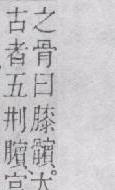 之骨曰膝髕。大
古者五刑臏宮